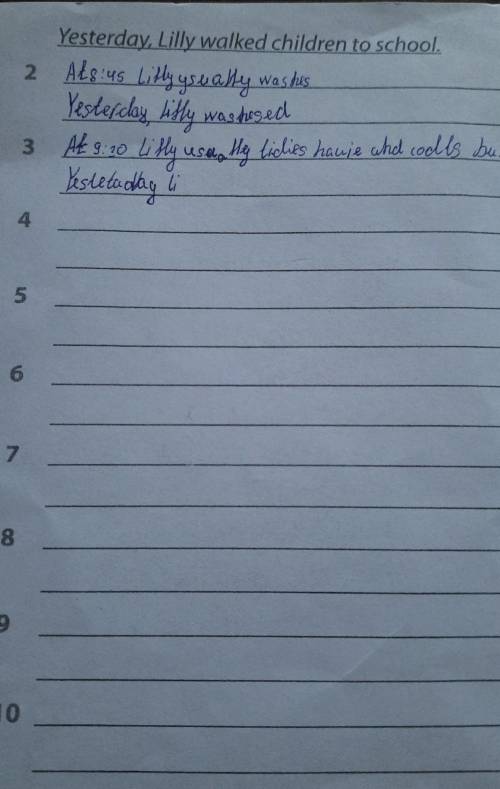 Yesterday, Lilly walked children to school.
2 At 8:45 Lilly usually washs
Yesterday, Lilly washused
3 At 9:30 Lilly usually tidies and
Yestetaday li
4
5
6
7
8
9
10